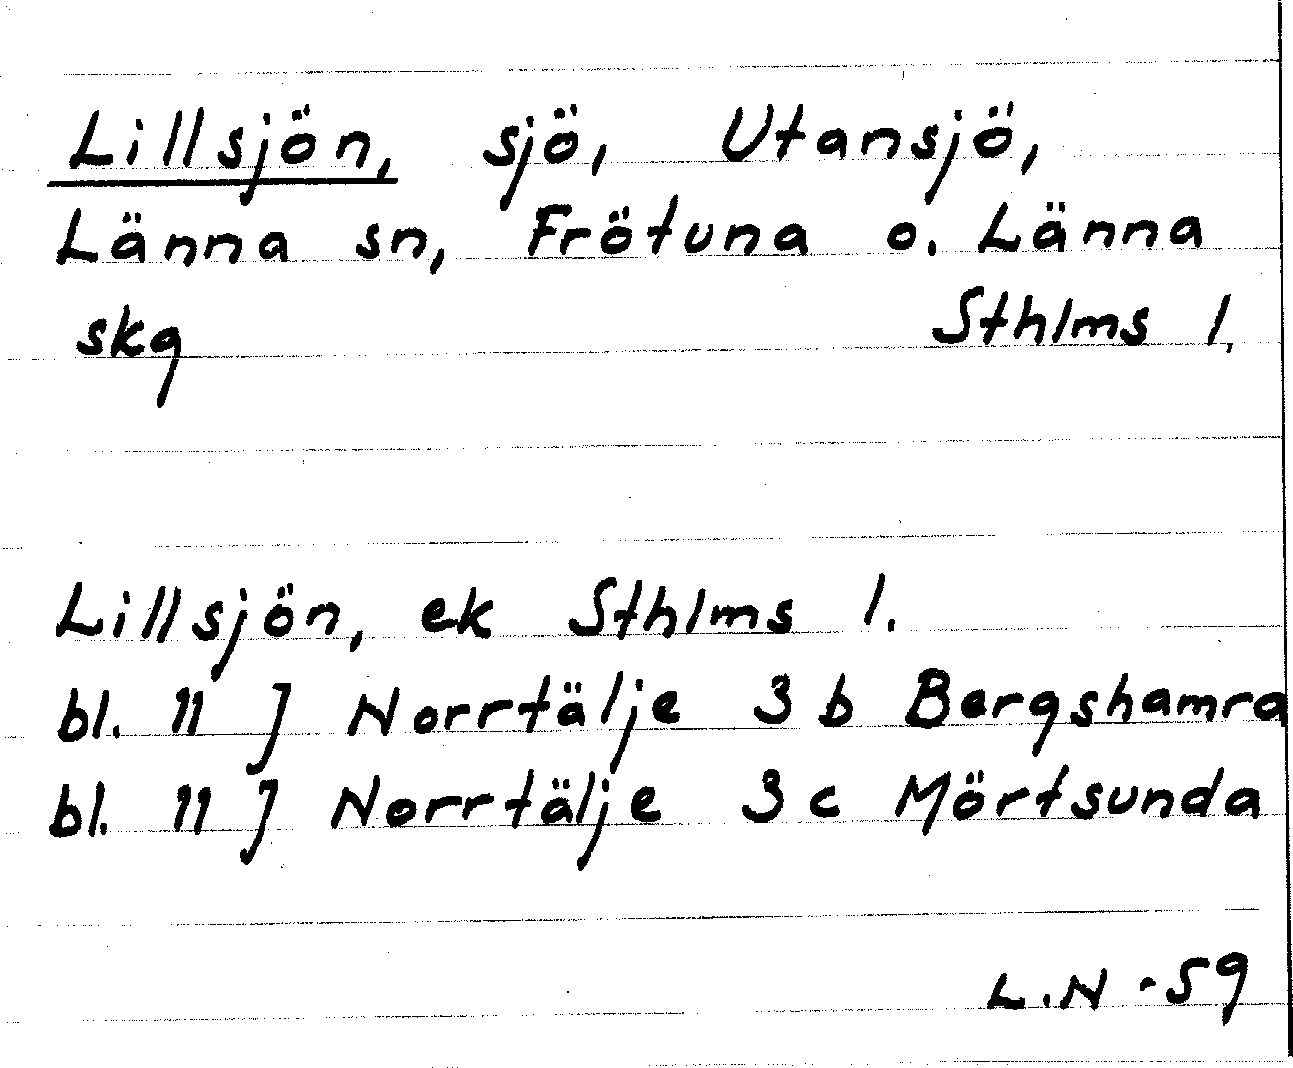 Lillsjön, sjö, Utansjö,
Länna sn, Frötuna o. Länna
skg Sthlms l.
Lillsjön, ek Sthlms l.
bl. 11 J Norrtälje 3 b Bergshamra
bl. 11 J Norrtälje 3 c Mörtsunda
L.N -59